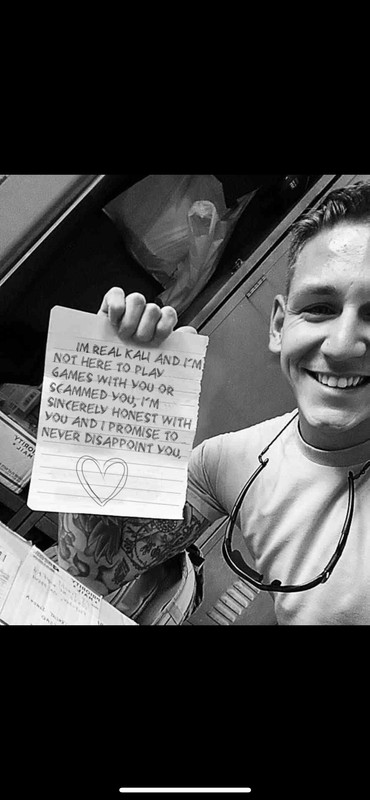 IM REAL KALI AND I'M
NOT HERE TO PLAY
GAMES WITH YOU OR
SCAMMED YOU, I'M
SINCERELY HONEST WITH
YOU AND I PROMISE TO
NEVER DISAPPOINT YOU,